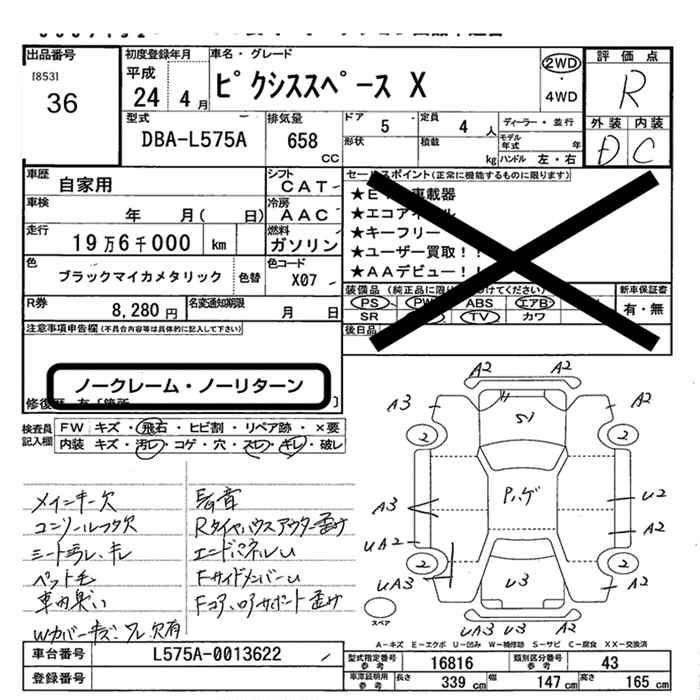 出品番号
[853]
36
初度登録年月
平成
24 4 月
車名・グレード
ピクシススペース X
2WD
・
4WD
評価点
R
外装 内装
D C
型式
DBA-L575A
排気量
658
CC
ドア
5
定員
4 人
形状
積載
kg
ディーラー・並行
モデル年式 年
ハンドル 左・右
車歴
自家用
シフト
CAT
車検
年 月( 日)
冷房
AAC
走行
19万6千000 km
燃料
ガソリン
色
ブラックマイカメタリック
色替
色コード
X07
R券
8,280円
名変通知期限
月 日
セールスポイント(正常に機能するものに限ります)
車載器
★エコア
★キーフリー
★ユーザー買取!!
★AAデビュー!!
装備品
PS PW ABS エアB
SR TV カワ
新車保証書
有・無
後日品
注意事項申告欄(不具合内容等は具体的に記入して下さい)
ノークレーム・ノーリターン
検査員記入欄
FW キズ・飛石・ヒビ割・リペア跡・×要
内装 キズ・汚レ・コゲ・穴・スレ・キレ・破レ
メインキー欠
コンソールフタ欠
シート汚レ、キレ
ペット毛
車内臭い
Wカバーキズ、ワレ、欠有
異音
Rタイヤハウスアウター曲げ
エンドパネルU
FサイドメンバーU
Fコア、ロアサポート曲げ
A2 A2
A3 A2
S1
2 2
P、ゲ
A3
U2
A2
UA2
2 2
UA3
U3
A2
U3 A2
スペア
A-キズ E-エクボ U-凹み W-補修跡 S-サビ C-腐食 XX-交換済
車台番号
L575A-0013622
登録番号
型式指定番号 参考
16816
類別区分番号 参考
43
車庫証明用 参考
長さ 339 cm
幅 147 cm
高さ 165 cm